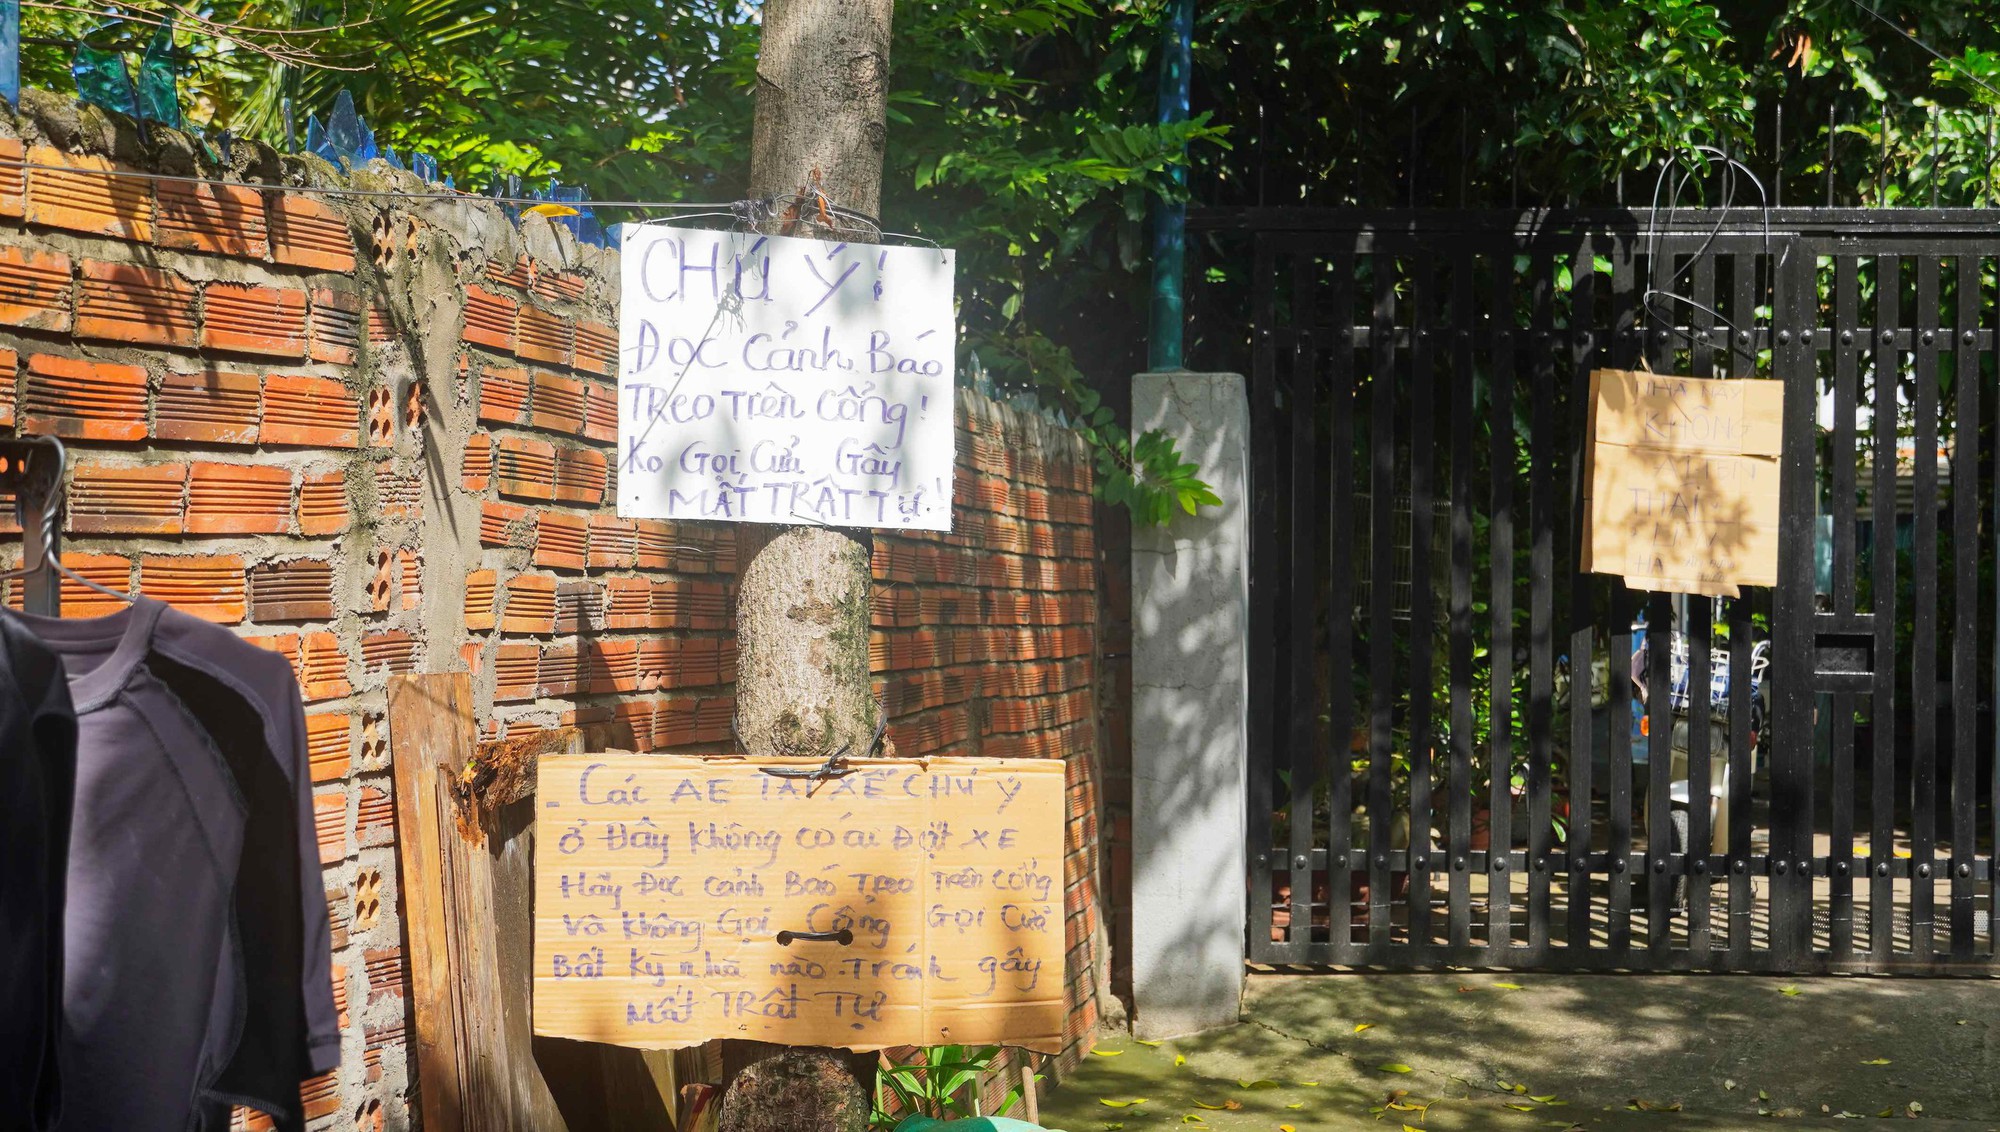 CHÚ Ý!
Đọc cảnh Báo
TReo Trên cổng!
Ko Gọi Cửa Gây
MẤT TRẬT Tự!
- Các AE TÀI XẾ CHÚ Ý
ở Đây không có ai Đặt XE
Hãy Đọc cảnh Báo Treo Trên cổng
và không Gọi Cổng Gọi Cửa
Bất kỳ nhà nào. Tránh gây
Mất TRật Tự
NHÀ NÀY
KHÔNG